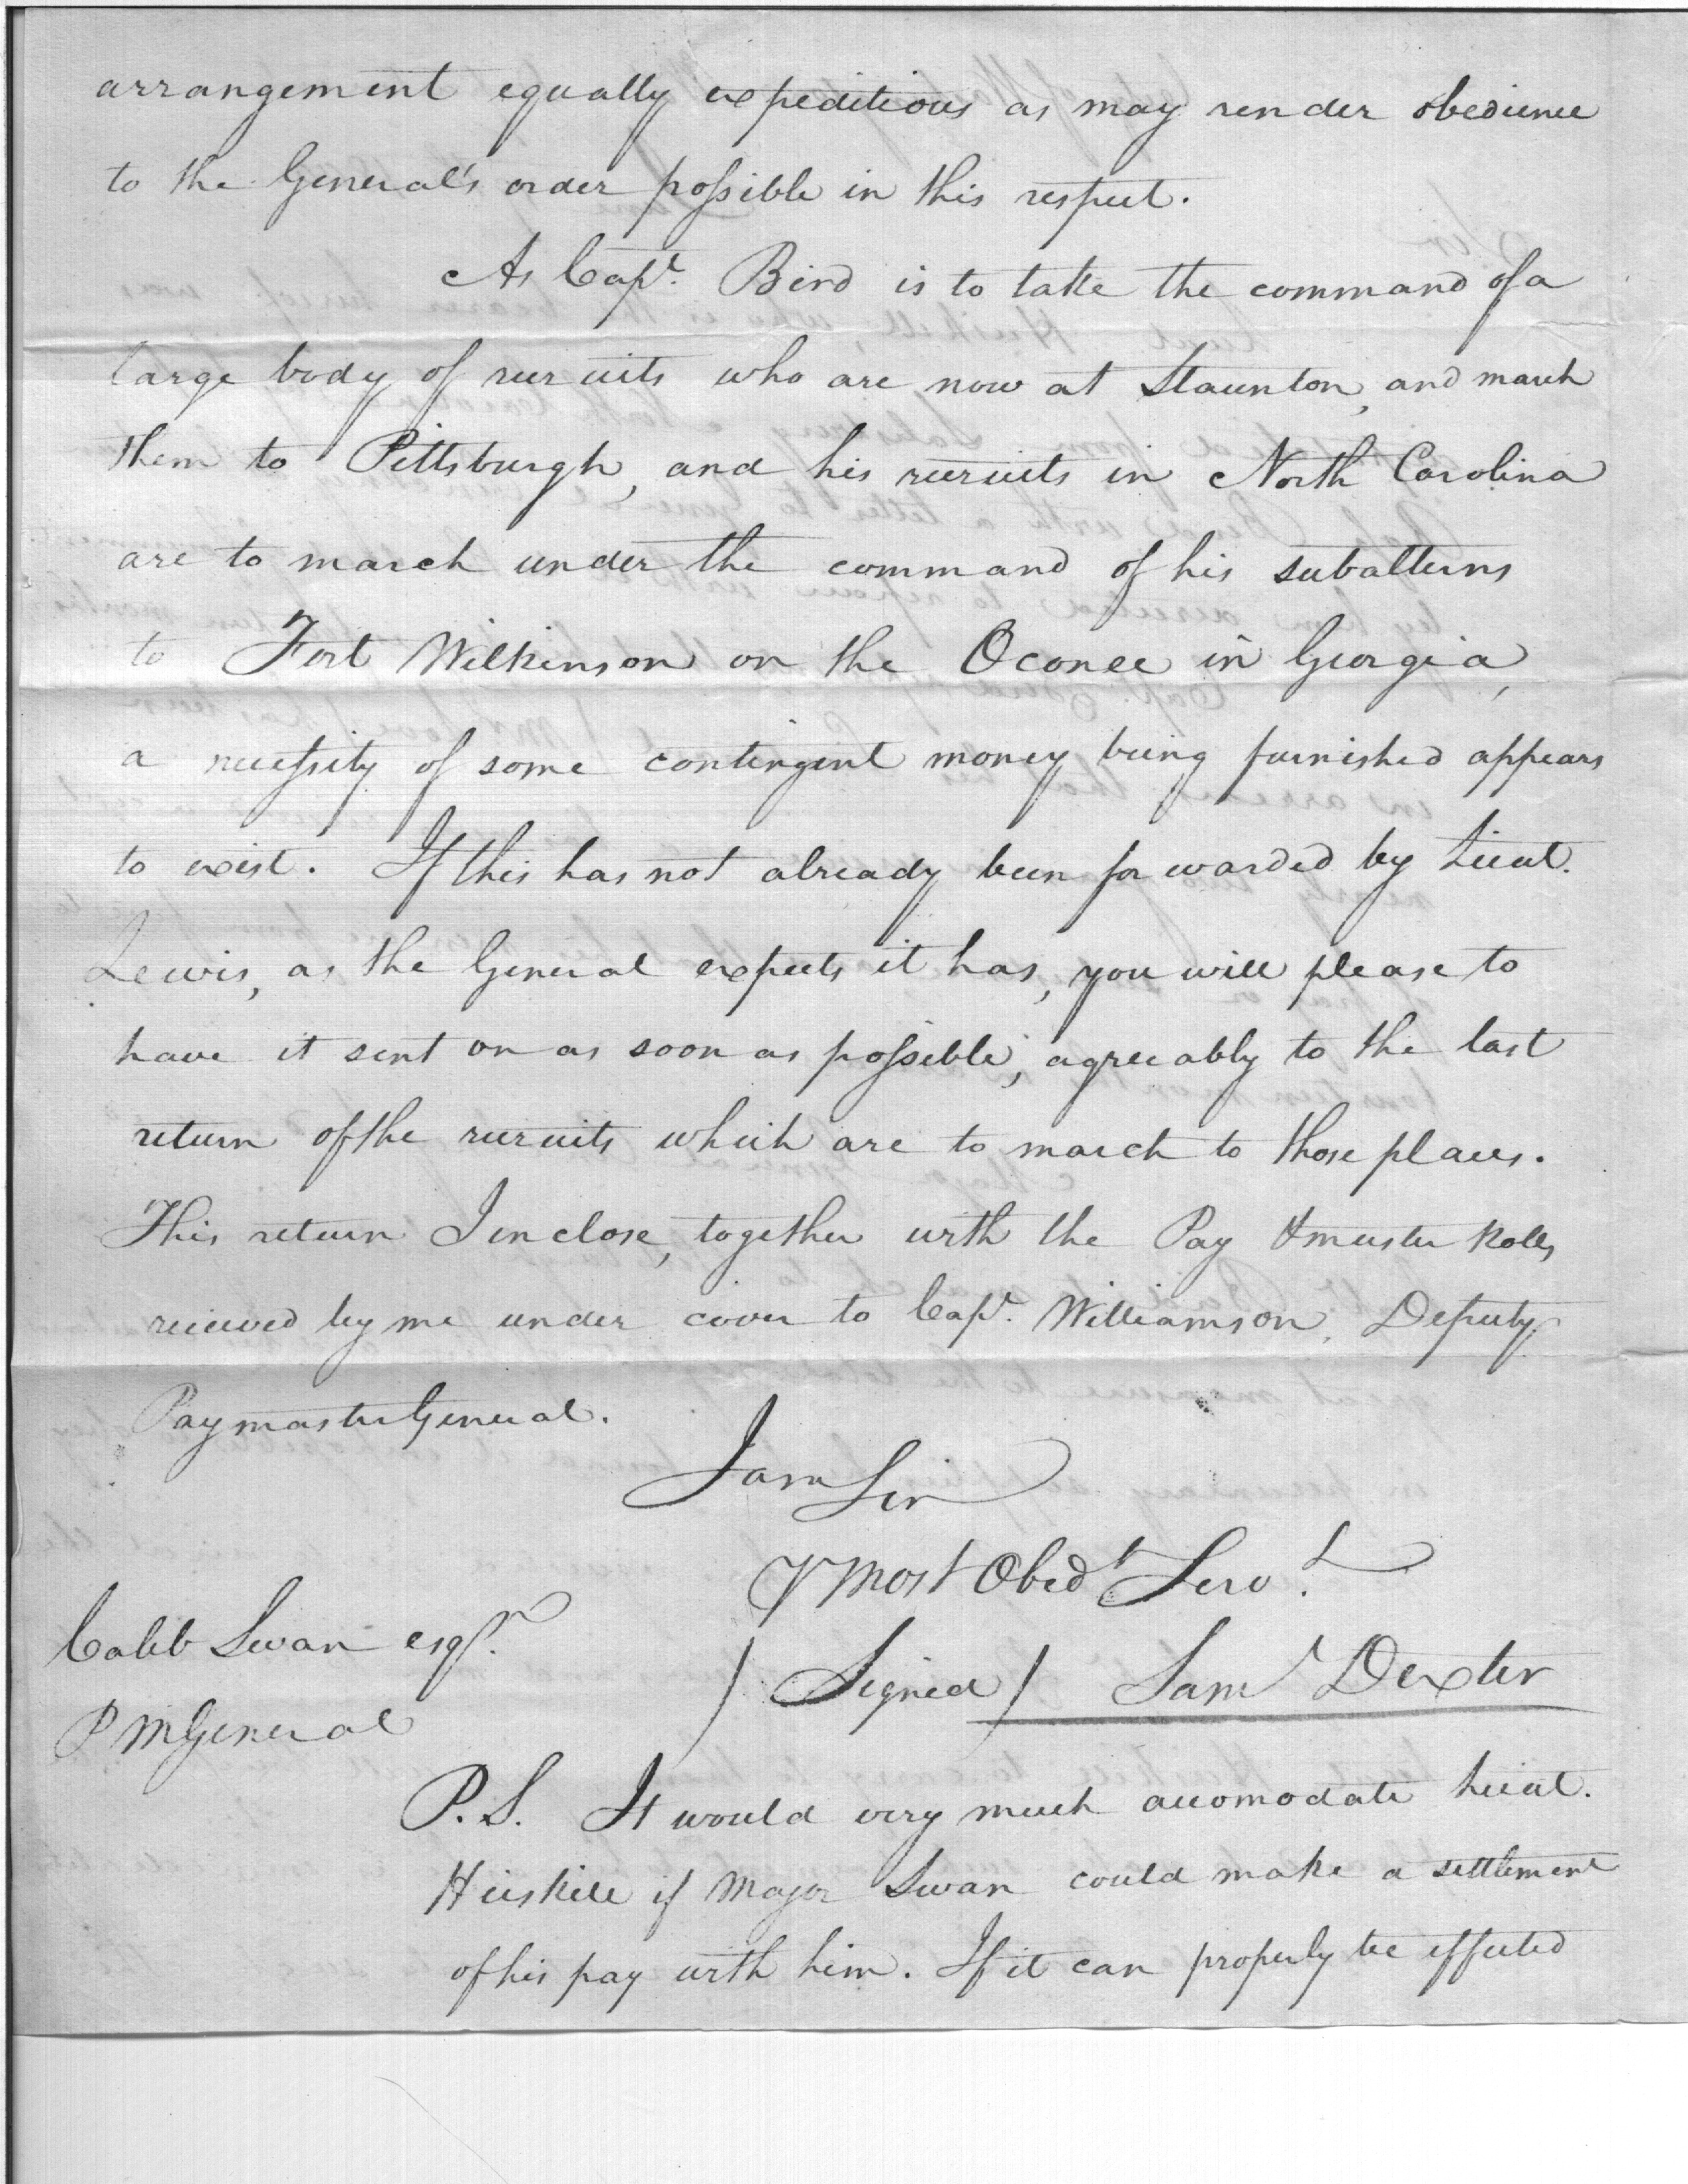 arrangement equally expeditious as may render obedience
to the General's order possible in this respect.
As Capt. Bird is to take the command of a
large body of recruits who are now at Staunton, and march
them to Pittsburgh, and his recruits in North Carolina
are to march under the command of his subalterns
to Fort Wilkinson on the Oconee in Georgia,
a necessity of some contingent money being furnished appears
to exist. If this has not already been forwarded by Lieut.
Lewis, as the General expects it has, you will please to
have it sent on as soon as possible, agreeably to the last
return of the recruits which are to march to those places.
This return I inclose, together with the Pay & muster Rolls
recieved by me under cover to Capt. Williamson, Deputy
Paymaster General.
I am Sir
Yr most Obedt Servt
Caleb Swan esqr.
(Signed) Saml Dexter
P M General
P.S. It would very much accomodate Lieut.
Heiskill if Major Swan could make a settlement
of his pay with him. If it can properly be effected